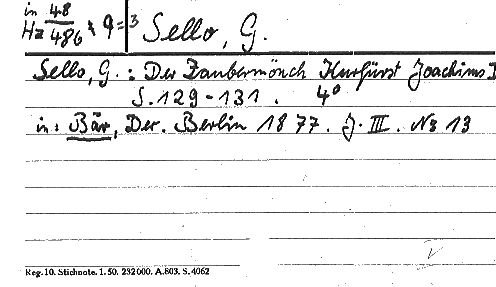 in 48
Hz 486 & 9 = 3 Sello, G.
Sello, G.: Der Zaubermönch Kurfürst Joachims I
S. 129-131. 4°
in: Bär, Der. Berlin 1877. J. III. No 13
Reg. 10. Stichnote. 1. 50. 232000. A.803. S. 4062